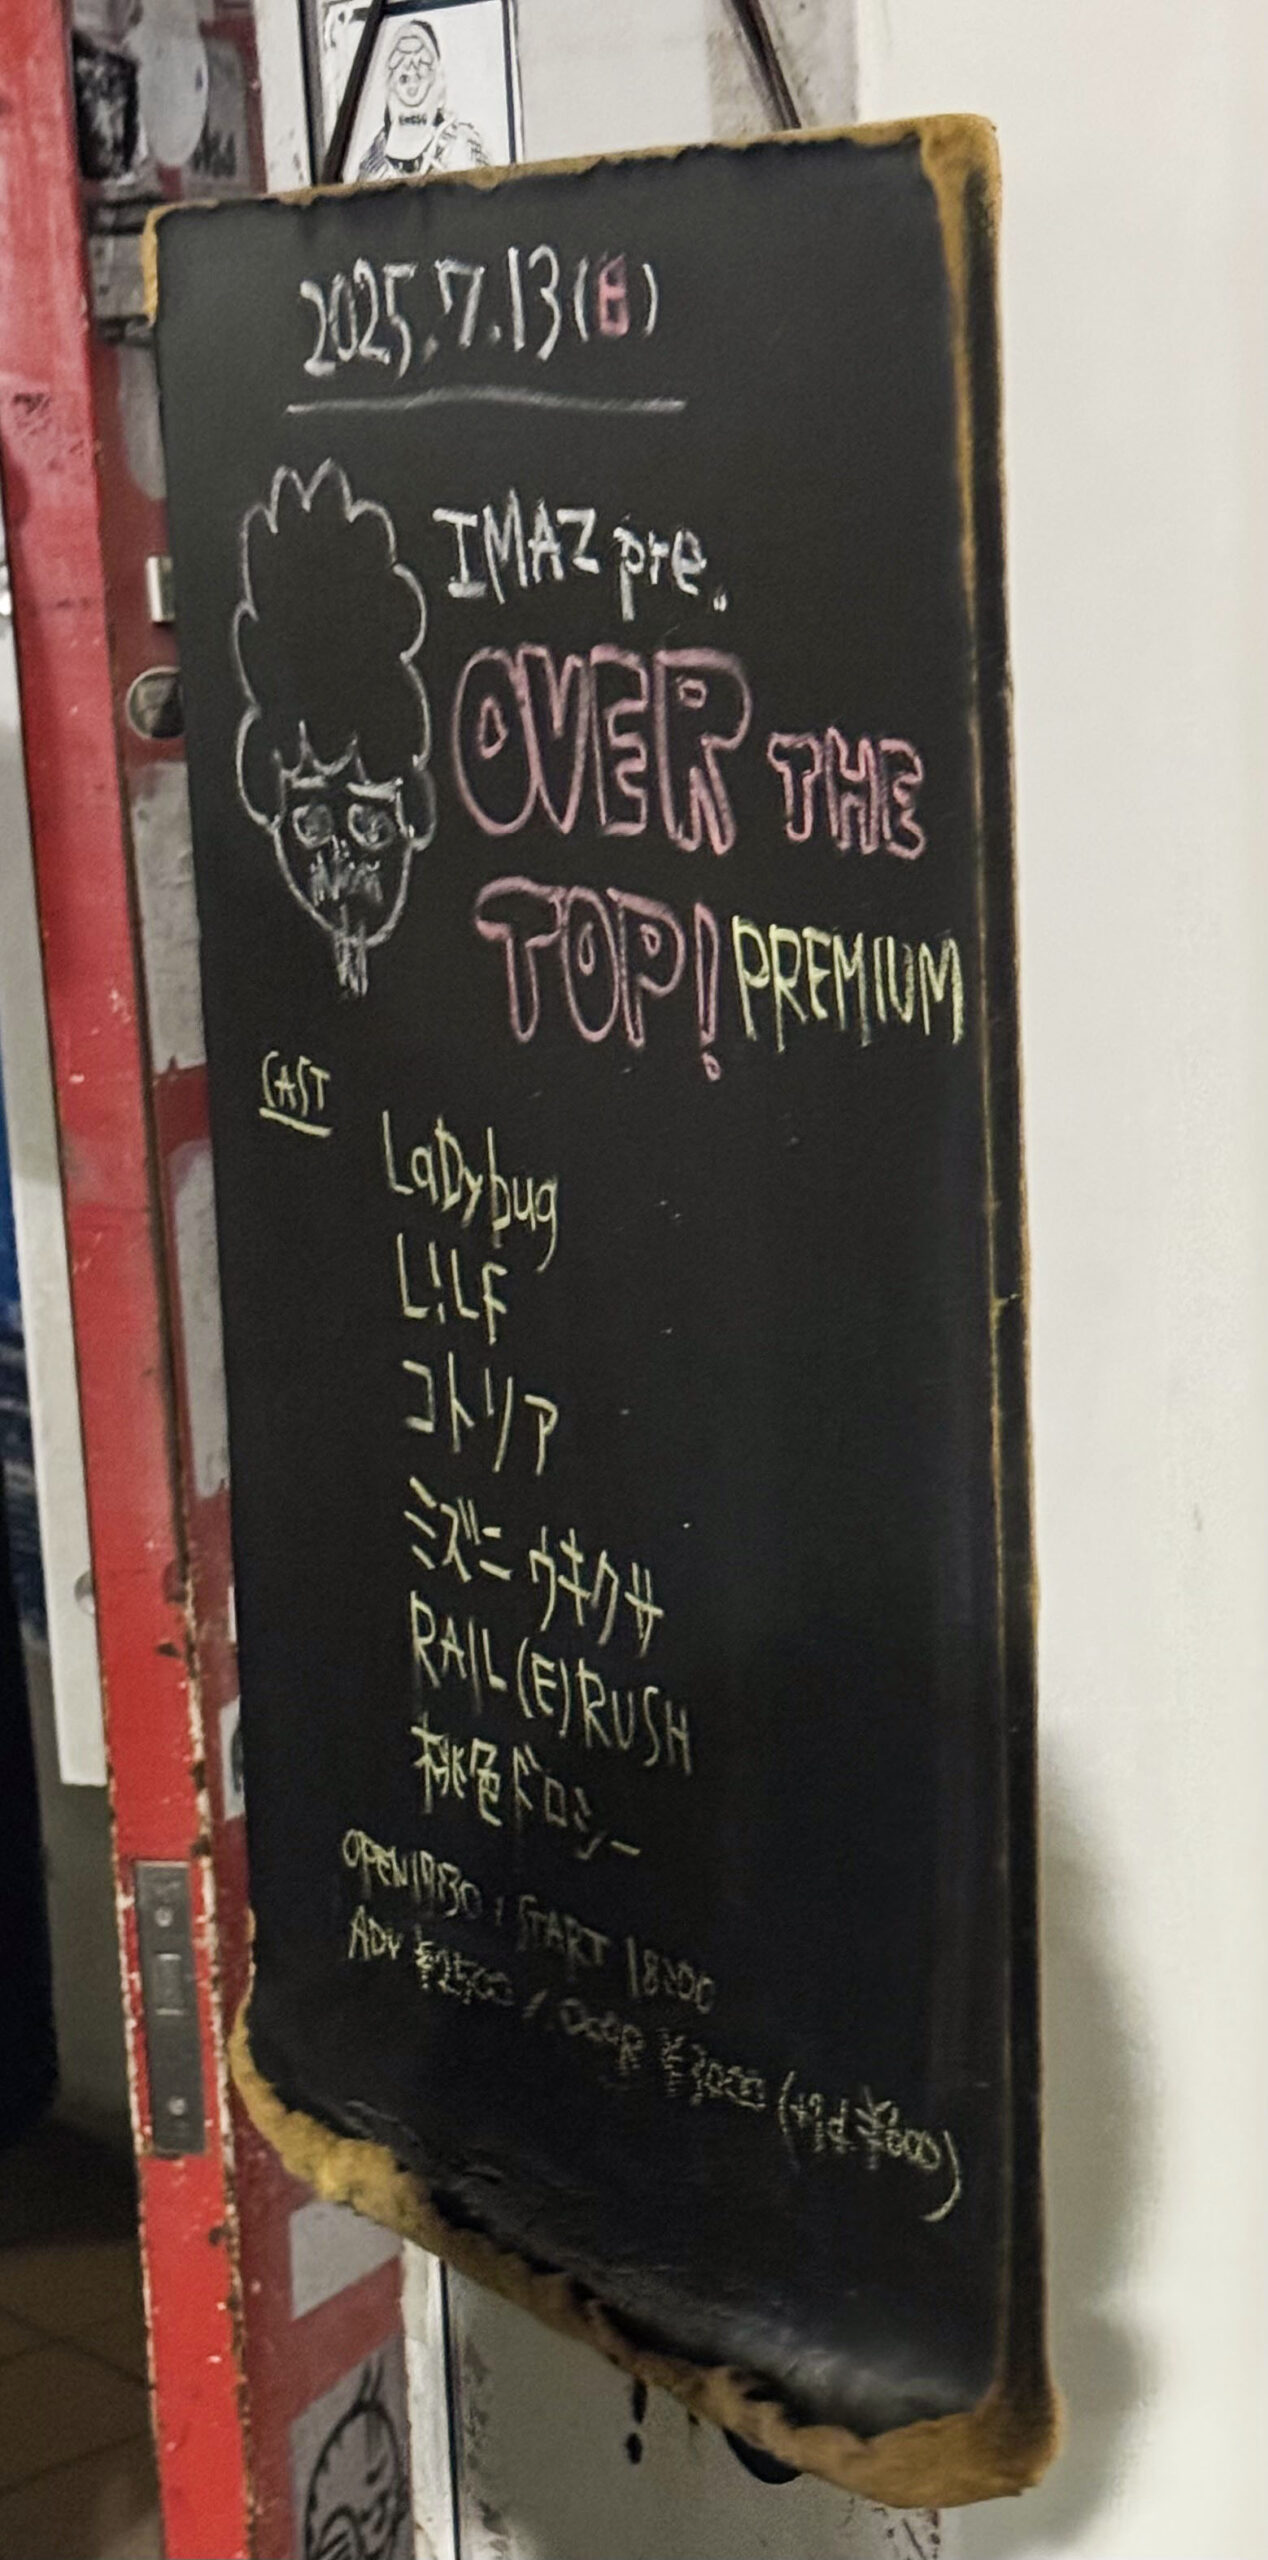 2025.7.13(日)
IMAZ pre.
OVER THE
TOP! PREMIUM
CAST
LaDybug
L!LF
コトリア
ミズニウキクサ
RAIL(E)RUSH
桃色ドロシー
OPEN / START 18:00
ADV ¥2500 / DOOR ¥3000 (+1d ¥600)